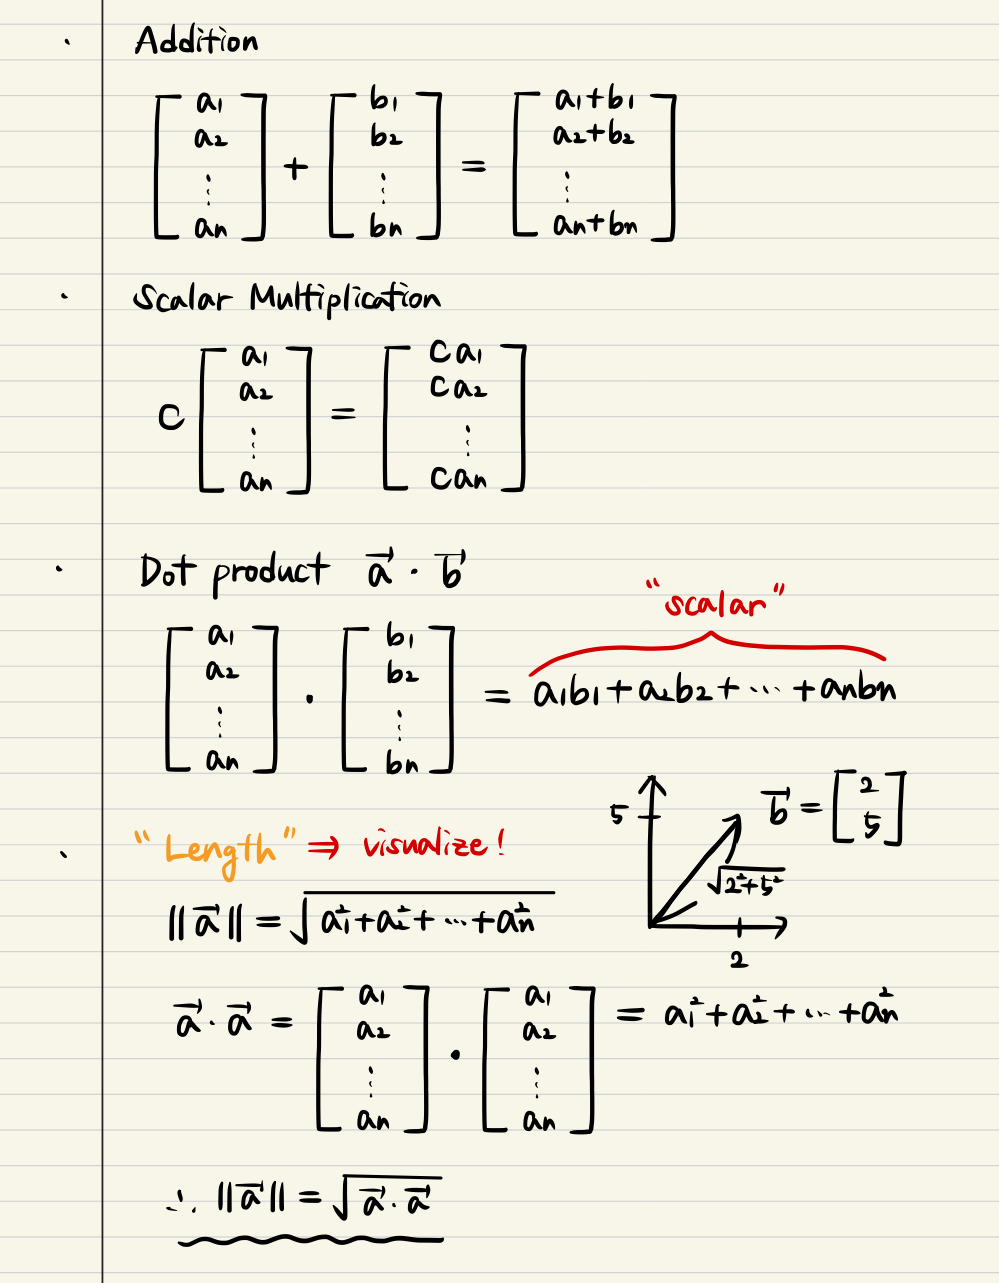 · Addition
[a₁ a₂ ⋮ aₙ] + [b₁ b₂ ⋮ bₙ] = [a₁+b₁ a₂+b₂ ⋮ aₙ+bₙ]
· Scalar Multiplication
c [a₁ a₂ ⋮ aₙ] = [ca₁ ca₂ ⋮ caₙ]
· Dot product a⃗ · b⃗
"scalar"
[a₁ a₂ ⋮ aₙ] · [b₁ b₂ ⋮ bₙ] = a₁b₁+a₂b₂+⋯+aₙbₙ
· "Length" ⇒ visualize!
‖a⃗‖ = √(a₁²+a₂²+⋯+aₙ²)
5
b⃗ = [2 5]
√(2²+5²)
2
a⃗·a⃗ = [a₁ a₂ ⋮ aₙ] · [a₁ a₂ ⋮ aₙ] = a₁²+a₂²+⋯+aₙ²
∴ ‖a⃗‖ = √(a⃗·a⃗)